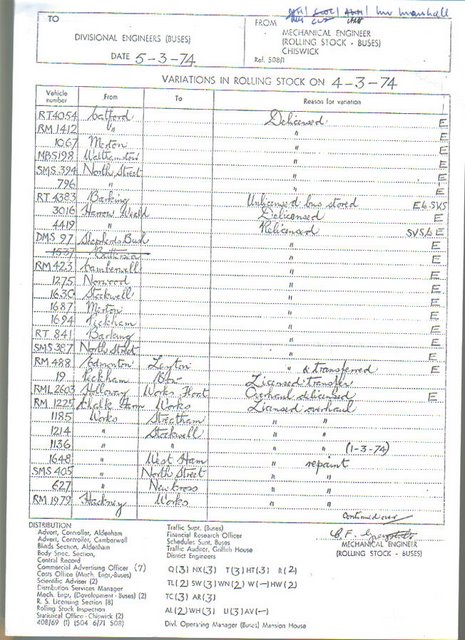 TO
FROM
DIVISIONAL ENGINEERS (BUSES)
MECHANICAL ENGINEER
(ROLLING STOCK - BUSES)
CHISWICK
DATE 5-3-74
Ref. 508/1
VARIATIONS IN ROLLING STOCK ON 4-3-74
Vehicle number From To Reason for variation
RT4054 Catford Delicensed E
RM1412 " " E
1067 Merton " E
MB5198 Walthamstow " E
SMS394 North Street " E
796 " " E
RT4383 Barking Unlicensed bus stored E
3016 Harrow Weald Delicensed E
4419 " Relicensed E
DMS 97 Shepherds Bush " E
1537 Battersea
RM423 Camberwell " E
1275 Norwood " E
1630 Stockwell " E
1687 Merton " E
1694 Peckham " E
RT 841 Barking " E
SMS387 North Street " E
RM488 Edmonton Leyton " & transferred E
19 Peckham Licensed transfer
RML2603 Holloway Works Float Overhaul delicensed E
RM1225 Chalk Farm Works Licensed overhaul
1185 Works Streatham " "
1214 " Stockwell " "
1136 " " " " (1-3-74)
1648 " West Ham " repaint
SMS405 " North Street " "
627 " New Cross " "
RM1979 Hackney Works " "
Continued over
MECHANICAL ENGINEER
(ROLLING STOCK - BUSES)
DISTRIBUTION
Advert. Controller, Aldenham
Advert. Controller, Camberwell
Blinds Section, Aldenham
Body Strct. Section,
Central Record
Commercial Advertising Officer (7)
Costs Office (Mech. Engr.-Buses)
Scientific Adviser (2)
Distribution Services Manager
Mech. Engr. (Development - Buses) (2)
R. S. Licensing Section (8)
Rolling Stock Inspection
Statistical Office - Chiswick (2)
408/69 (1) (504 6/71 508)
Traffic Supt. (Buses)
Financial Research Officer
Schedules Supt. Buses
Traffic Auditor, Griffith House
District Engineers
Q(3) NX(3) T(3) HT(3) R(2)
TL(2) SW(3) WN(2) W(-) HW(2)
TC(3) AR(3)
AL(2) WH(3) U(3) AV(-)
Divl. Operating Manager (Buses) Mansion House